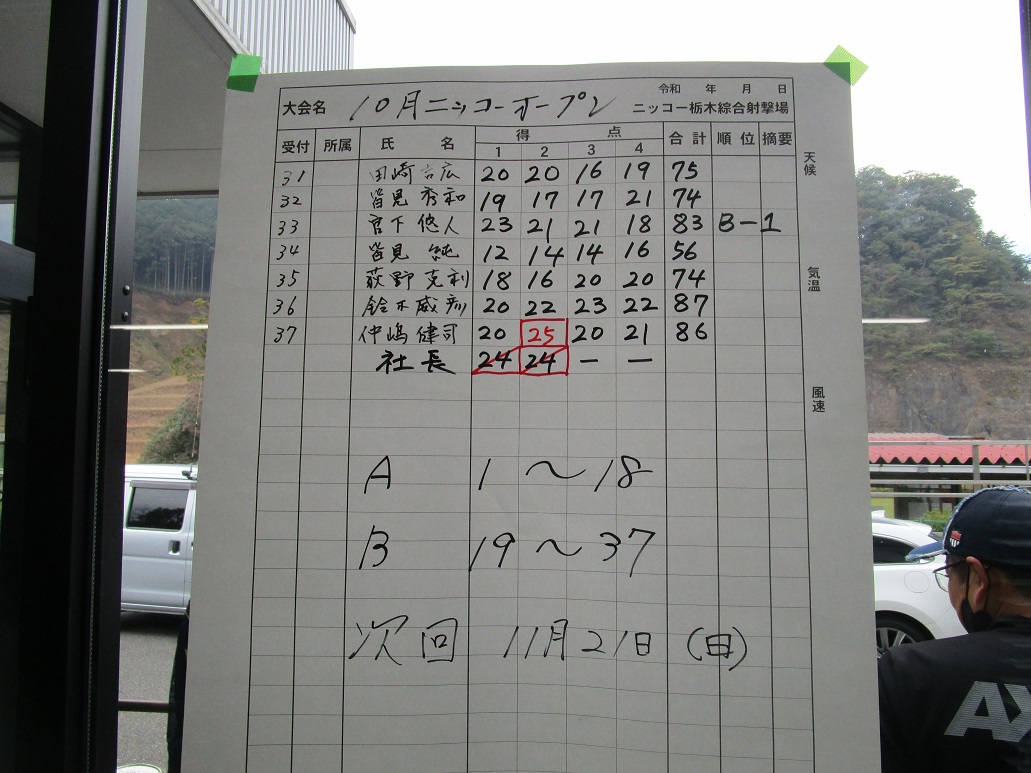 令和 年 月 日
大会名 10月ニッコーオープン ニッコー栃木綜合射撃場
受付 所属 氏名 得点 合計 順位 摘要
1 2 3 4
天候
31 田崎 広 20 20 16 19 75
32 皆見 秀和 19 17 17 21 74
33 宮下 悠人 23 21 21 18 83 B-1
34 皆見 純 12 14 14 16 56
気温
35 荻野 克利 18 16 20 20 74
36 鈴木 威彦 20 22 23 22 87
37 仲嶋 健司 20 25 20 21 86
社長 24 24 - -
風速
A 1〜18
B 19〜37
次回 11月21日(日)
AX